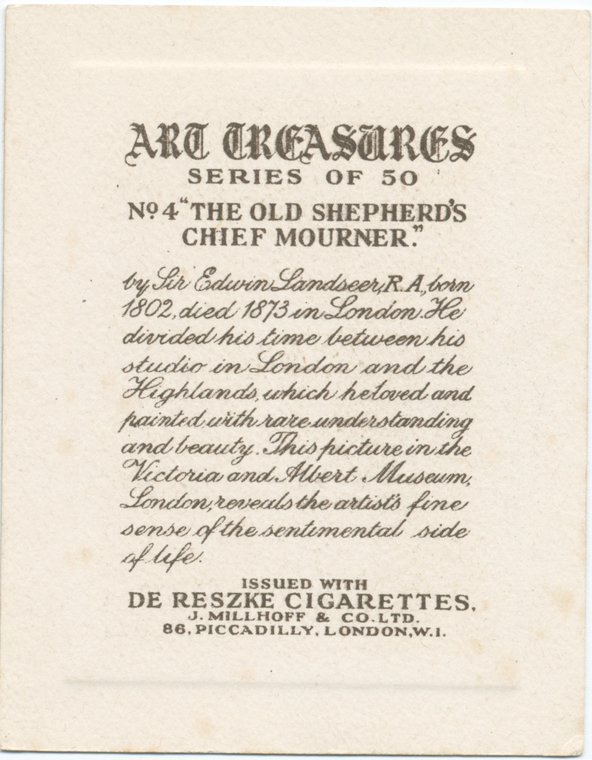 ART TREASURES
SERIES OF 50
No 4 "THE OLD SHEPHERD'S
CHIEF MOURNER."
by Sir Edwin Landseer, R.A., born
1802, died 1873 in London. He
divided his time between his
studio in London and the
Highlands, which he loved and
painted with rare understanding
and beauty. This picture in the
Victoria and Albert Museum,
London, reveals the artist's fine
sense of the sentimental side
of life.
ISSUED WITH
DE RESZKE CIGARETTES.
J. MILLHOFF & CO. LTD.
86, PICCADILLY, LONDON, W.1.